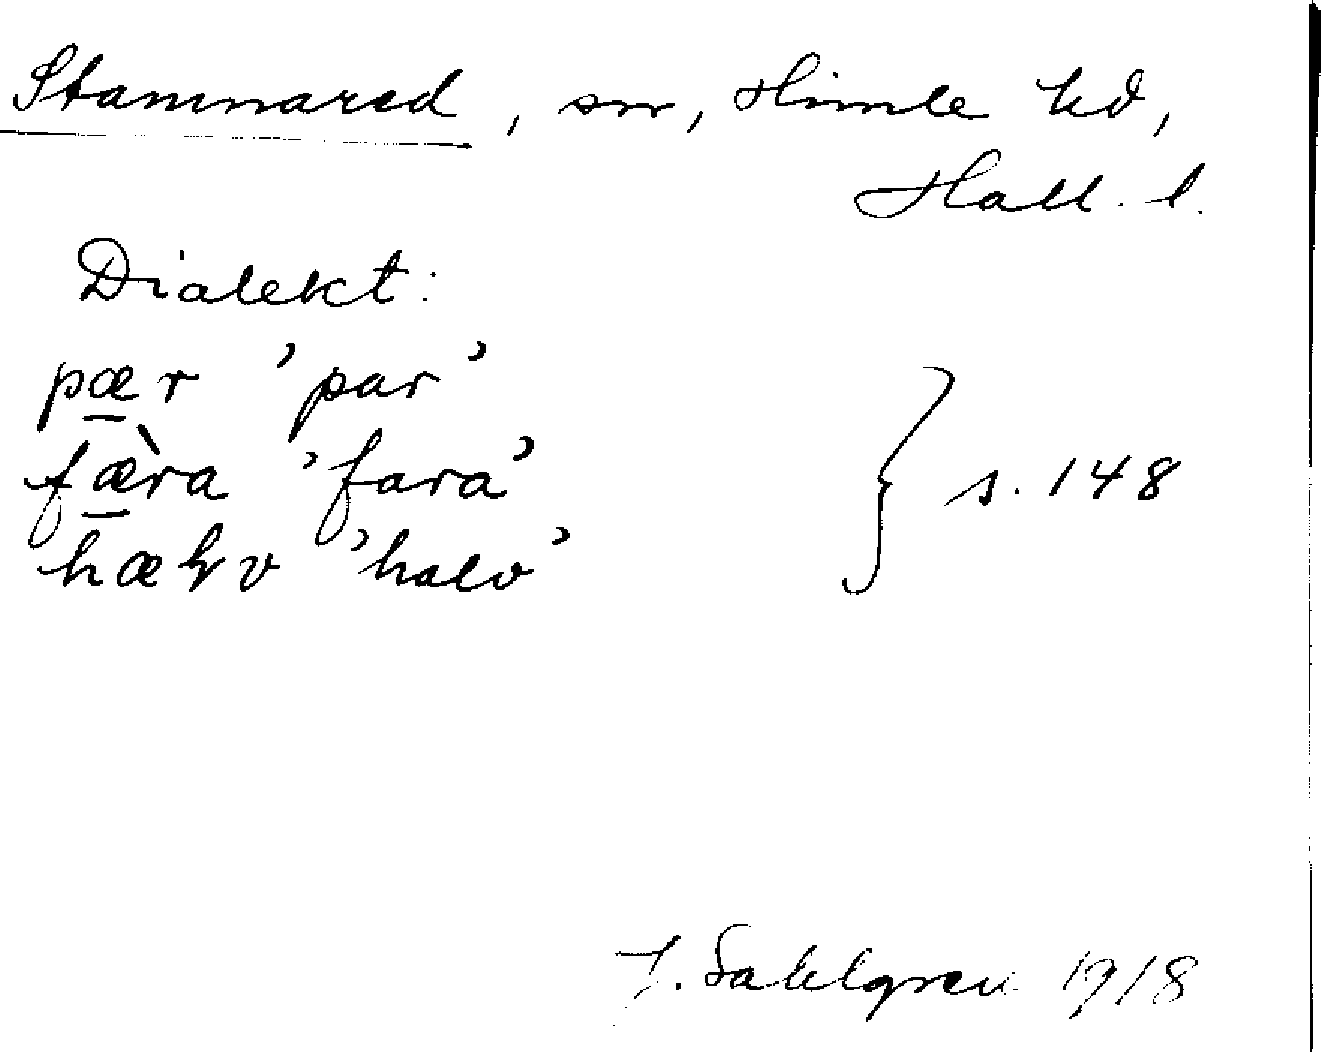 Stamnared, sn, Himle hd,
Hall. l.
Dialekt:
pæ̲r 'par'
fæ̲̀ra 'fara'
hæɫv 'halv'
} s. 148
J. Sahlgren 1918